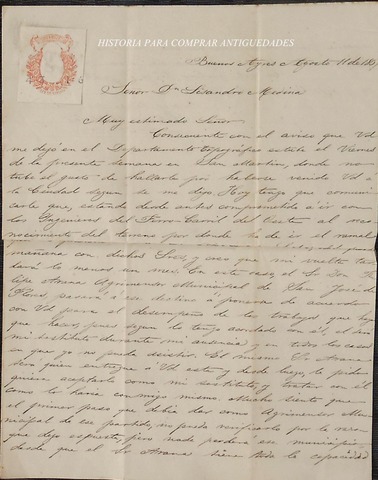 HISTORIA PARA COMPRAR ANTIGUEDADES
Buenos Ayres Agosto 11 de
Señor Dn Lisandro Medina
Muy estimado Señor
Conocimiento con el aviso que Vd
me dejó en el Departamento Topográfico estube el Viernes
de la presente semana en San Martin, donde no
tube el gusto de hallarle por haberse venido Vd á
la Ciudad segun se me dijo. Hoy tengo que comuni
carle que, estando desde antes comprometido á ir con
los Ingenieros del Ferro-Carril del Oeste al reco
nocimiento del terreno por donde ha de ir el ramal
mañana con dichos Sres, y creo que mi vuelta tar
dará lo menos un mes. En este caso, el Sr Don Fe
lipe Arana Agrimensor Municipal de San José de
Flores, pasará á ese destino á ponerse de acuerdo
con Vd para el desempeño de los trabajos que hay
que hacer, pues segun lo tengo acordado con él, él será
mi sustituto durante mi ausencia y en todos los casos
en que yo no pueda asistir. El mismo Sr Arana
será quien entregue á Vd esta y desde luego, le pido
quiera aceptarlo como mi sustituto, y tratar con él
como lo haria con migo mismo. Mucho siento que
el primer paso que debia dar como Agrimensor Mu
nicipal de ese partido, no pueda verificarlo por la razon
que dejo espuesta, pero nada perderá ese municipio
desde que el Sr Arana tiene toda la capacidad